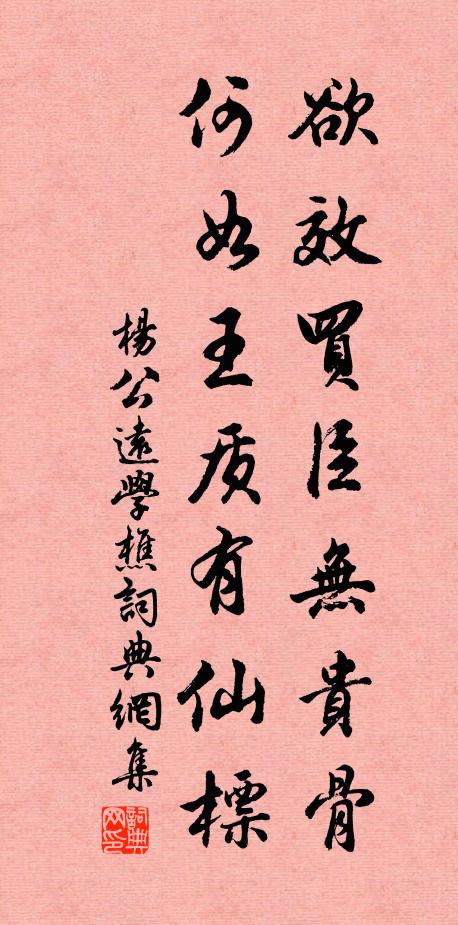 欲效買臣無貴骨
何如王质有仙標
楊公遠學樵詞典網集
詞典网印